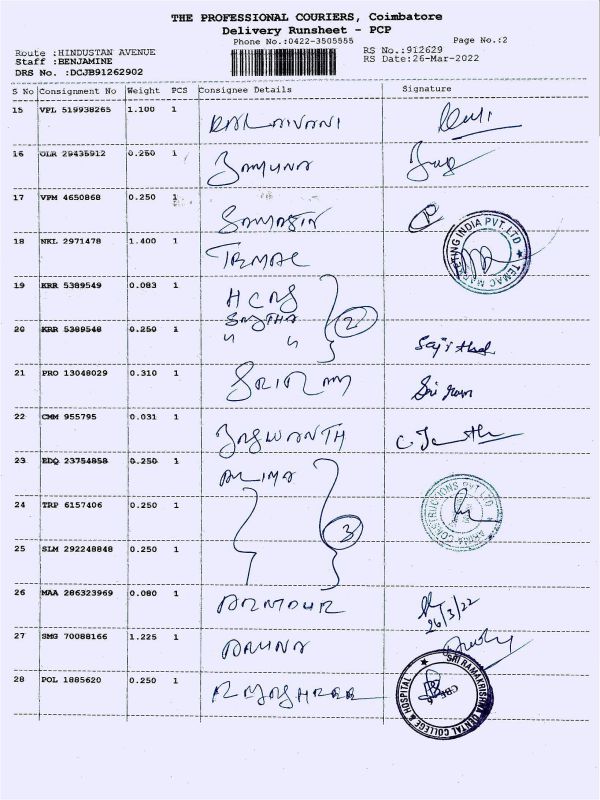 THE PROFESSIONAL COURIERS, Coimbatore
Delivery Runsheet - PCP
Phone No.:0422-3505555 Page No.:2
Route :HINDUSTAN AVENUE RS No.:912629
Staff :BENJAMINE RS Date:26-Mar-2022
DRS No. :DCJB91262902
S No Consignment No Weight PCS Consignee Details Signature
15 VPL 519938265 1.100 1 KALAIVANI
16 OLR 29435912 0.250 1 JAMUNA
17 VPM 4650868 0.250 1
18 NKL 2971478 1.400 1 TEMAC
TEMAC MARKETING INDIA PVT. LTD
19 KRR 5389549 0.083 1 HCRS
2
20 KRR 5389548 0.250 1
21 PRO 13048029 0.310 1 SRIRAM Sri ram
22 CMM 955795 0.031 1 JASWANTH
23 EDQ 23754858 0.250 1
24 TRP 6157406 0.250 1
CONSTRUCTIONS PVT LTD
3
25 SLM 292248848 0.250 1
26 MAA 286323969 0.080 1 26/3/22
27 SMG 70088166 1.225 1 ARUNA
28 POL 1885620 0.250 1
SRI RAMAKRISHNA DENTAL COLLEGE & HOSPITAL
CBE-6